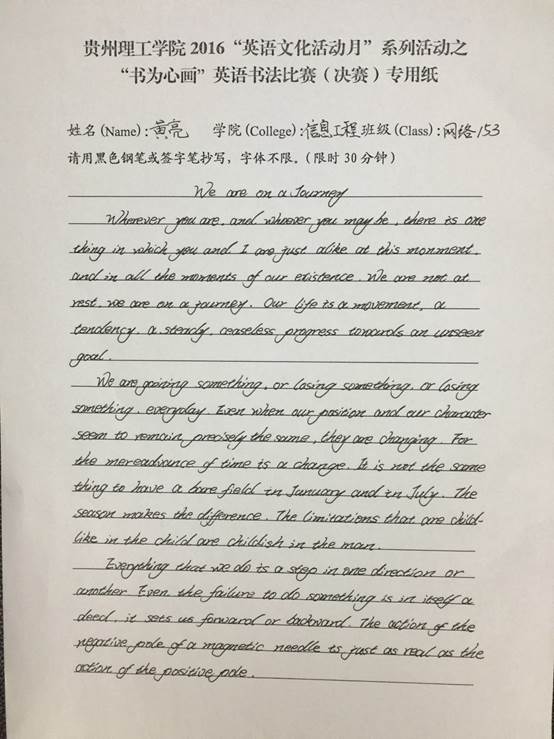 贵州理工学院 2016 “英语文化活动月” 系列活动之
“书为心画” 英语书法比赛（决赛）专用纸
姓名 (Name) : 黄亮 学院 (College) : 信息工程 班级 (Class) : 网络153
请用黑色钢笔或签字笔抄写，字体不限。（限时 30 分钟）
We are on a Journey
Wherever you are, and whoever you may be, there is one
thing in which you and I are just alike at this monment,
and in all the moments of our existence. We are not at
rest, we are on a journey. Our life is a movement, a
tendency, a steady, ceaseless progress towards an unseen
goal.
We are gaining something, or losing something, or losing
something, everyday Even when our position and our character
seem to remain precisely the same, they are changing. For
the mereadvance of time is a change. It is not the same
thing to have a bare field in January and in July. The
season makes the difference. The limitations that are child-
like in the child are childish in the man.
Everything that we do is a step in one direction or
another Even the failure to do something is in itself a
deed, it sets us forward or backward. The action of the
negative pole of a magnetic needle is just as real as the
action of the positive pole.